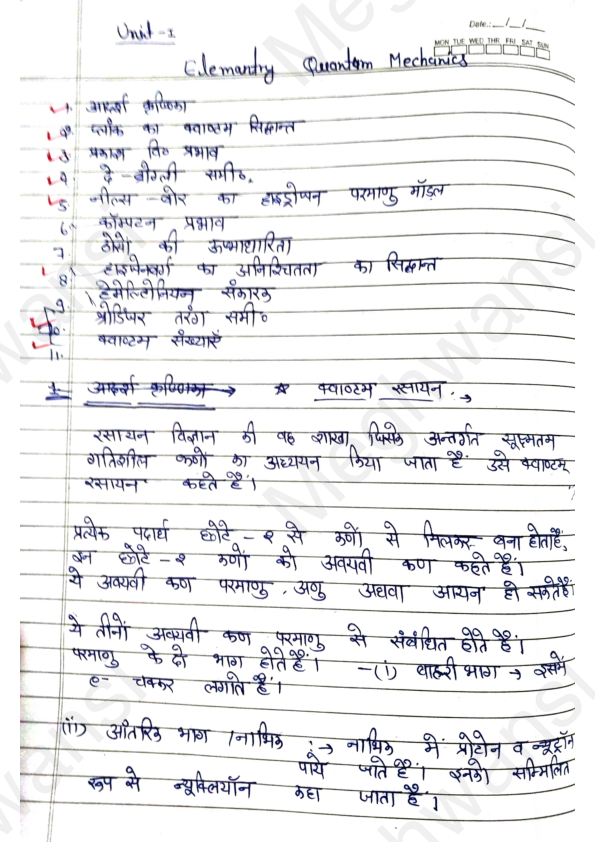 Date.:__/__/__
Unit - I
MON TUE WED THR FRI SAT SUN
Elemantry Quantom Mechanics
1. आदर्श कृष्णिका
2. प्लांक का क्वाण्टम सिद्धान्त
3. प्रकाश वि० प्रभाव
4. दे - ब्रोग्ली समी०.
5. नील्स - बोर का हाइड्रोजन परमाणु मॉडल
6. कॉम्पटन प्रभाव
7. ठोसो की ऊष्माधारिता
8. हाइजेनबर्ग का अनिश्चितता का सिद्धान्त
9. हेमिल्टोनियन संकारक
10. श्रोडिंजर तरंग समी०
11. क्वाण्टम संख्याएँ
1 आदर्श कृष्णिका → ☆ क्वाण्टम रसायन. →
रसायन विज्ञान की वह शाखा जिसके अन्तर्गत सूक्ष्मतम
गतिशील कणों का अध्ययन किया जाता हैं उसे क्वाण्टम्
रसायन कहते हैं।
प्रत्येक पदार्थ छोटे - २ से कणों से मिलकर बना होताहैं,
इन छोटे - २ कणों को अवयवी कण कहते हैं।
ये अवयवी कण परमाणु, अणु अथवा आयन हो सकतेहैं।
ये तीनों अवयवी कण परमाणु से संबंधित होते हैं।
परमाणु के दो भाग होते हैं। - (i) बाहरी भाग → इसमें
e- चक्कर लगाते हैं।
(ii) आंतरिक भाग / नाभिक :→ नाभिक में प्रोटोन व न्यूट्रॉन
पाये जाते हैं। इनको सम्मिलित
रूप से न्यूक्लियॉन कहा जाता हैं।
Meghwansi